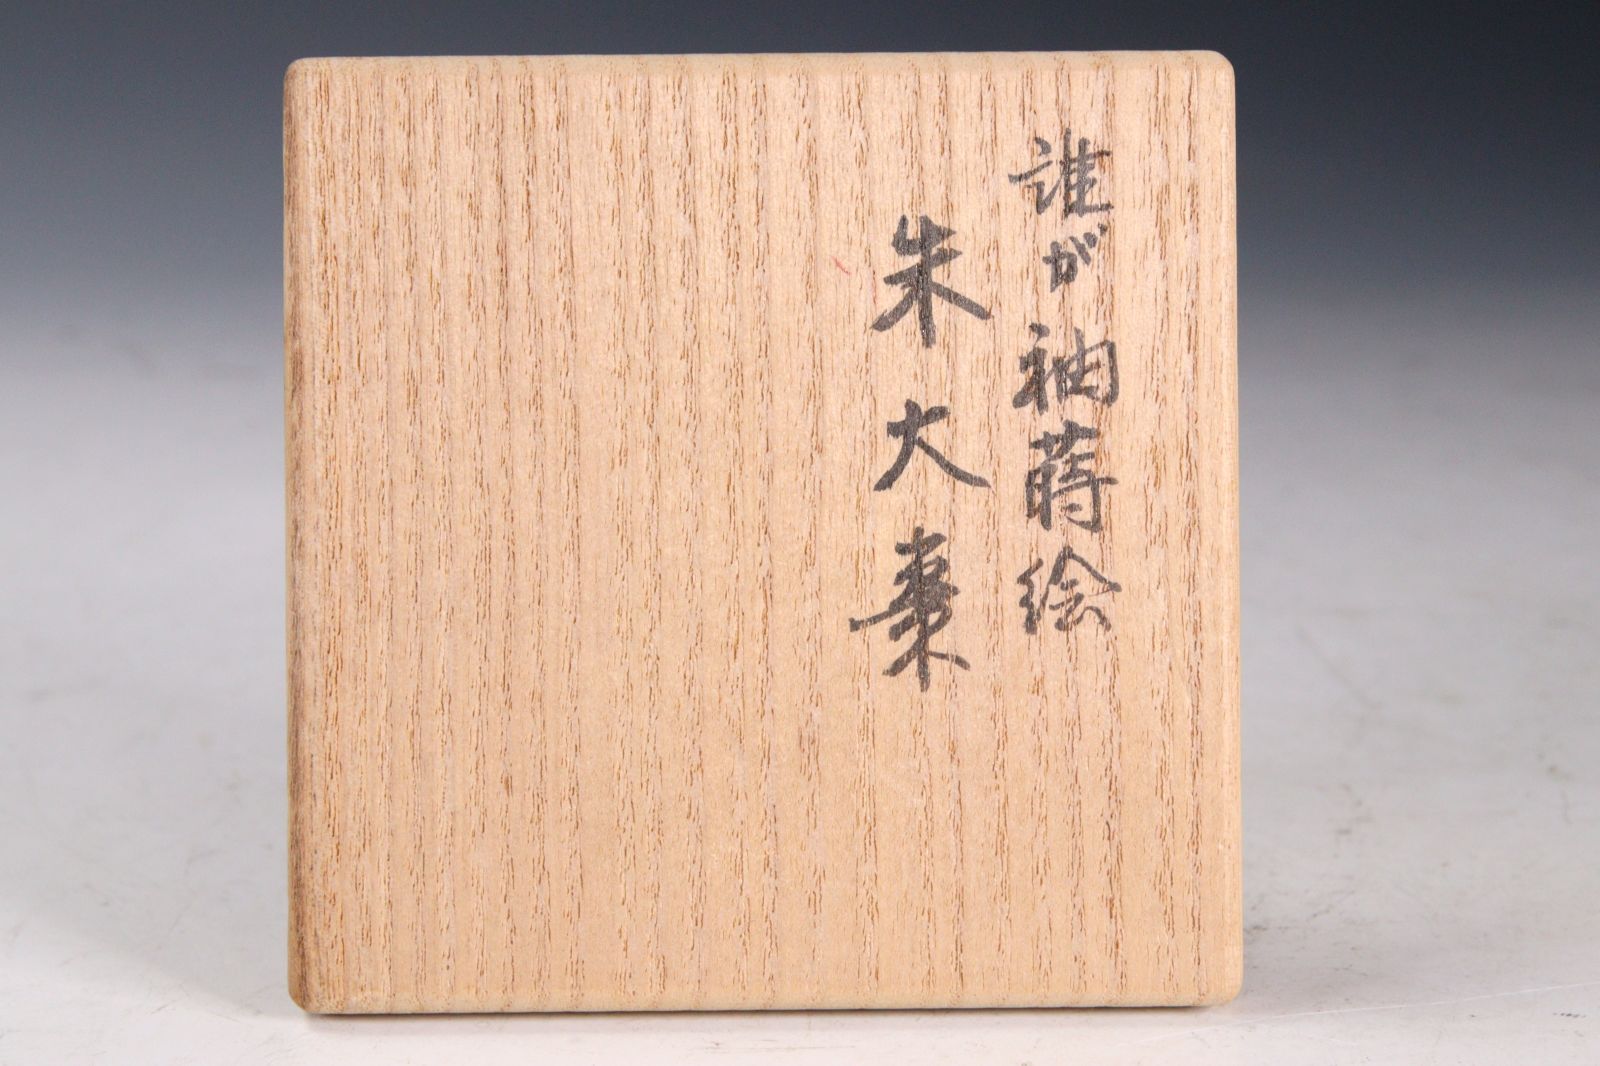 誰が袖蒔絵
朱大棗